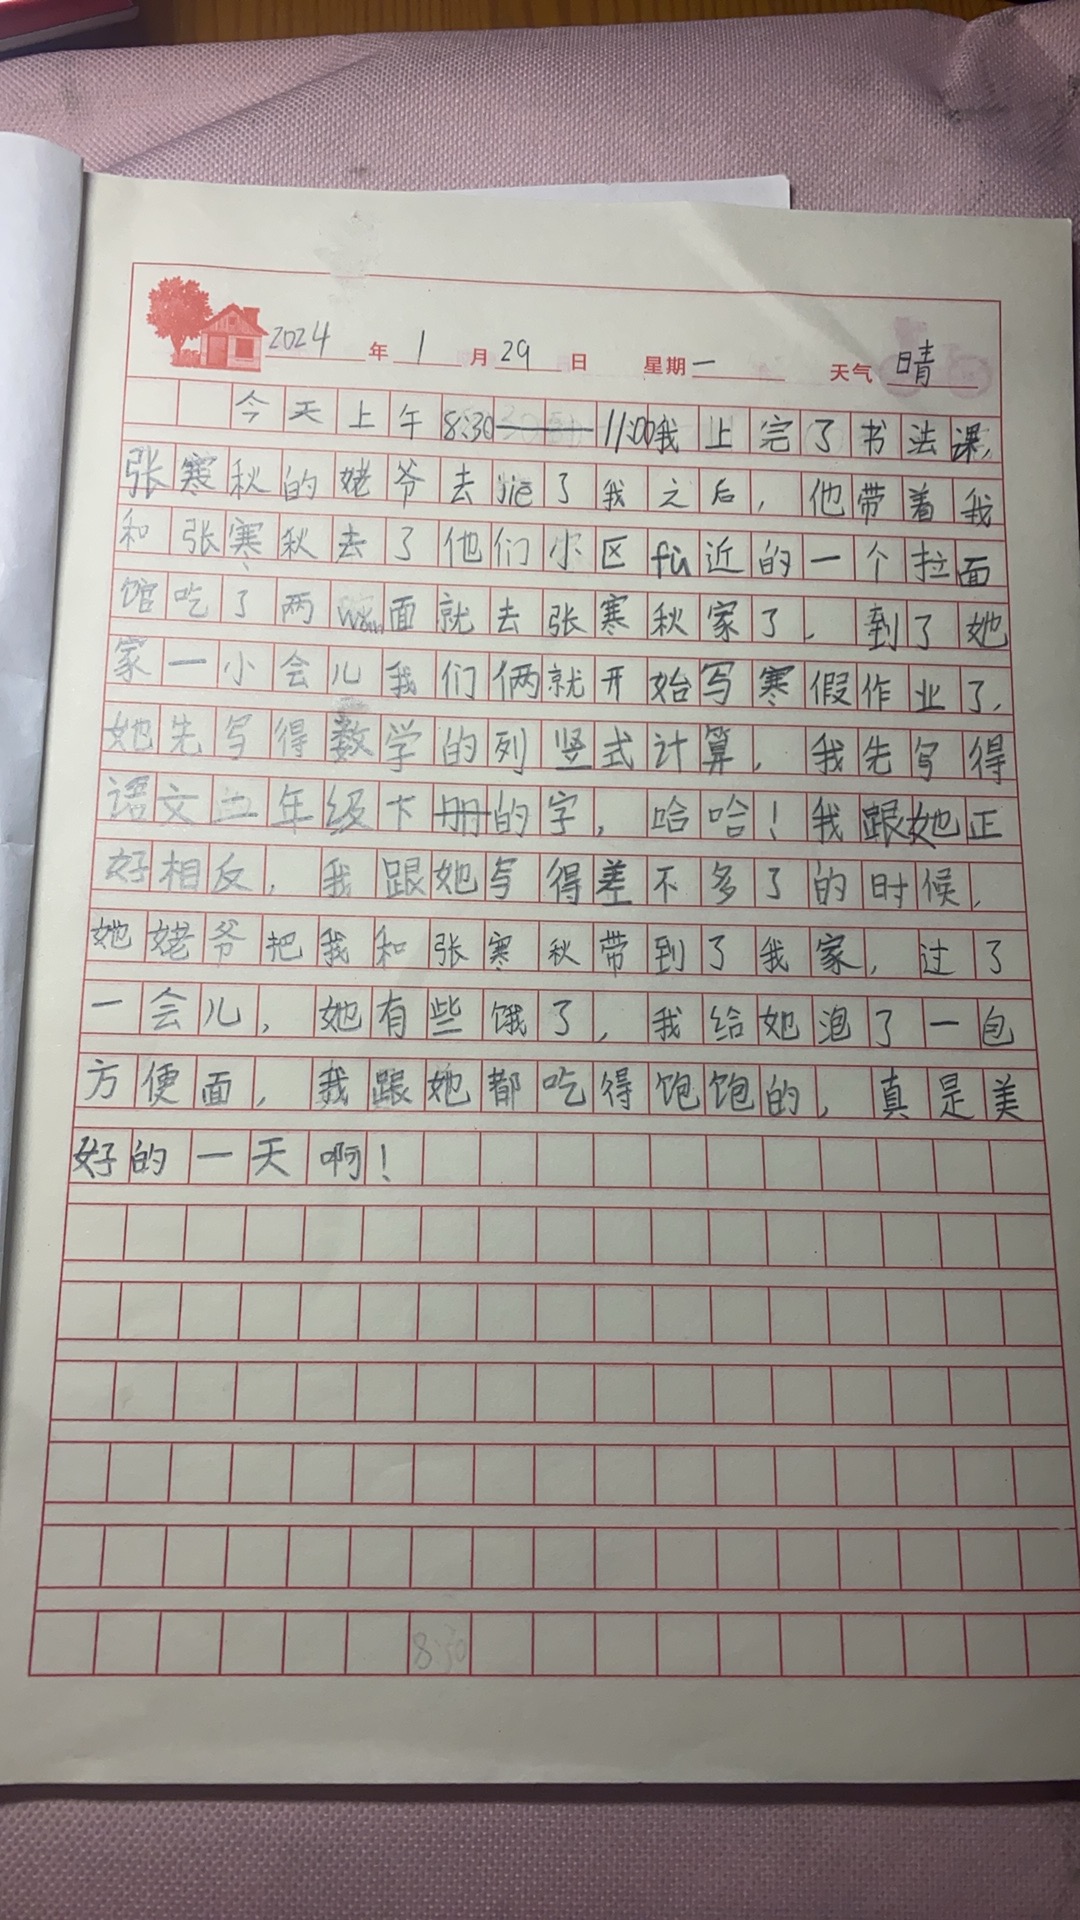 2024年1月29日 星期一 天气晴
今天上午8:30——11:00我上完了书法课,
张寒秋的姥爷去jiē了我之后，他带着我
和张寒秋去了他们小区fù近的一个拉面
馆吃了两wǎn面就去张寒秋家了，到了她
家一小会儿我们俩就开始写寒假作业了，
她先写得数学的列竖式计算，我先写得
语文二年级下册的字，哈哈！我跟她正
好相反，我跟她写得差不多了的时候，
她姥爷把我和张寒秋带到了我家，过了
一会儿，她有些饿了，我给她泡了一包
方便面，我跟她都吃得饱饱的，真是美
好的一天啊！
8:30